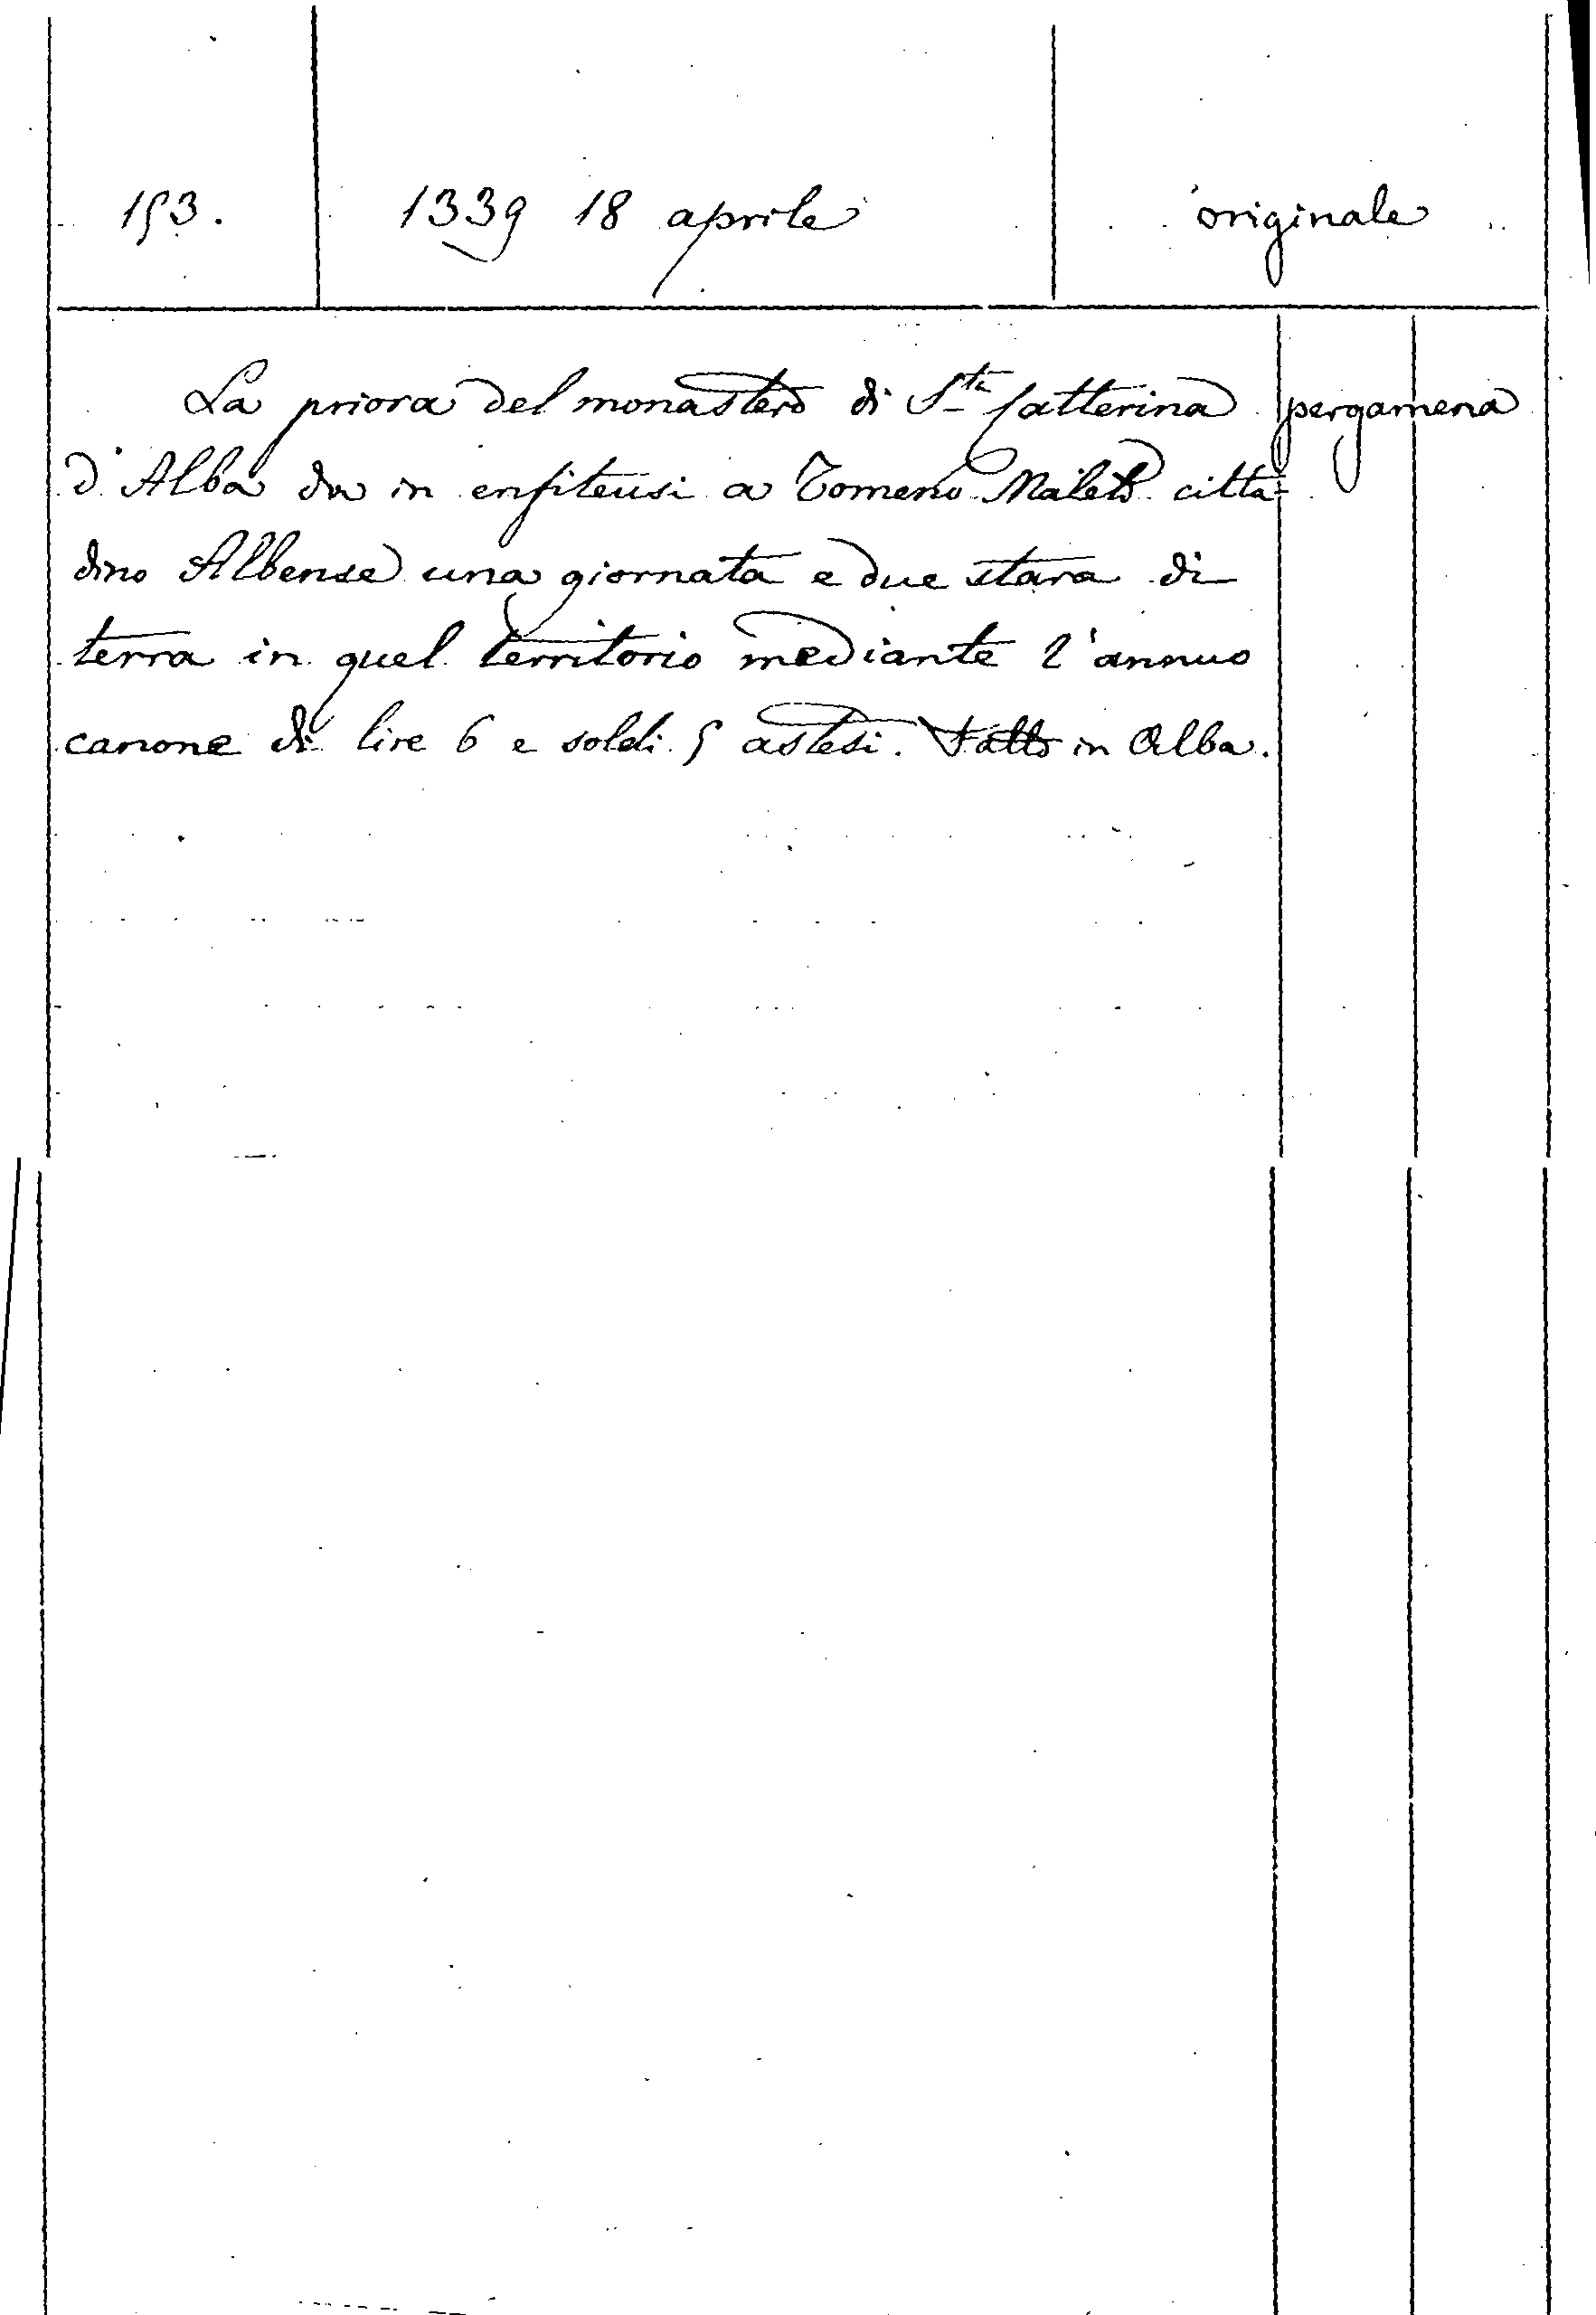 153.
1339 18 aprile
originale
La priora del monastero di S.ta Catterina
pergamena
d'Alba da in enfiteusi a Tomeno Maleto citta=
dino Albense una giornata e due stara di
terra in quel territorio mediante l'annuo
canone di lire 6 e soldi 5 astesi. Fatto in Alba.